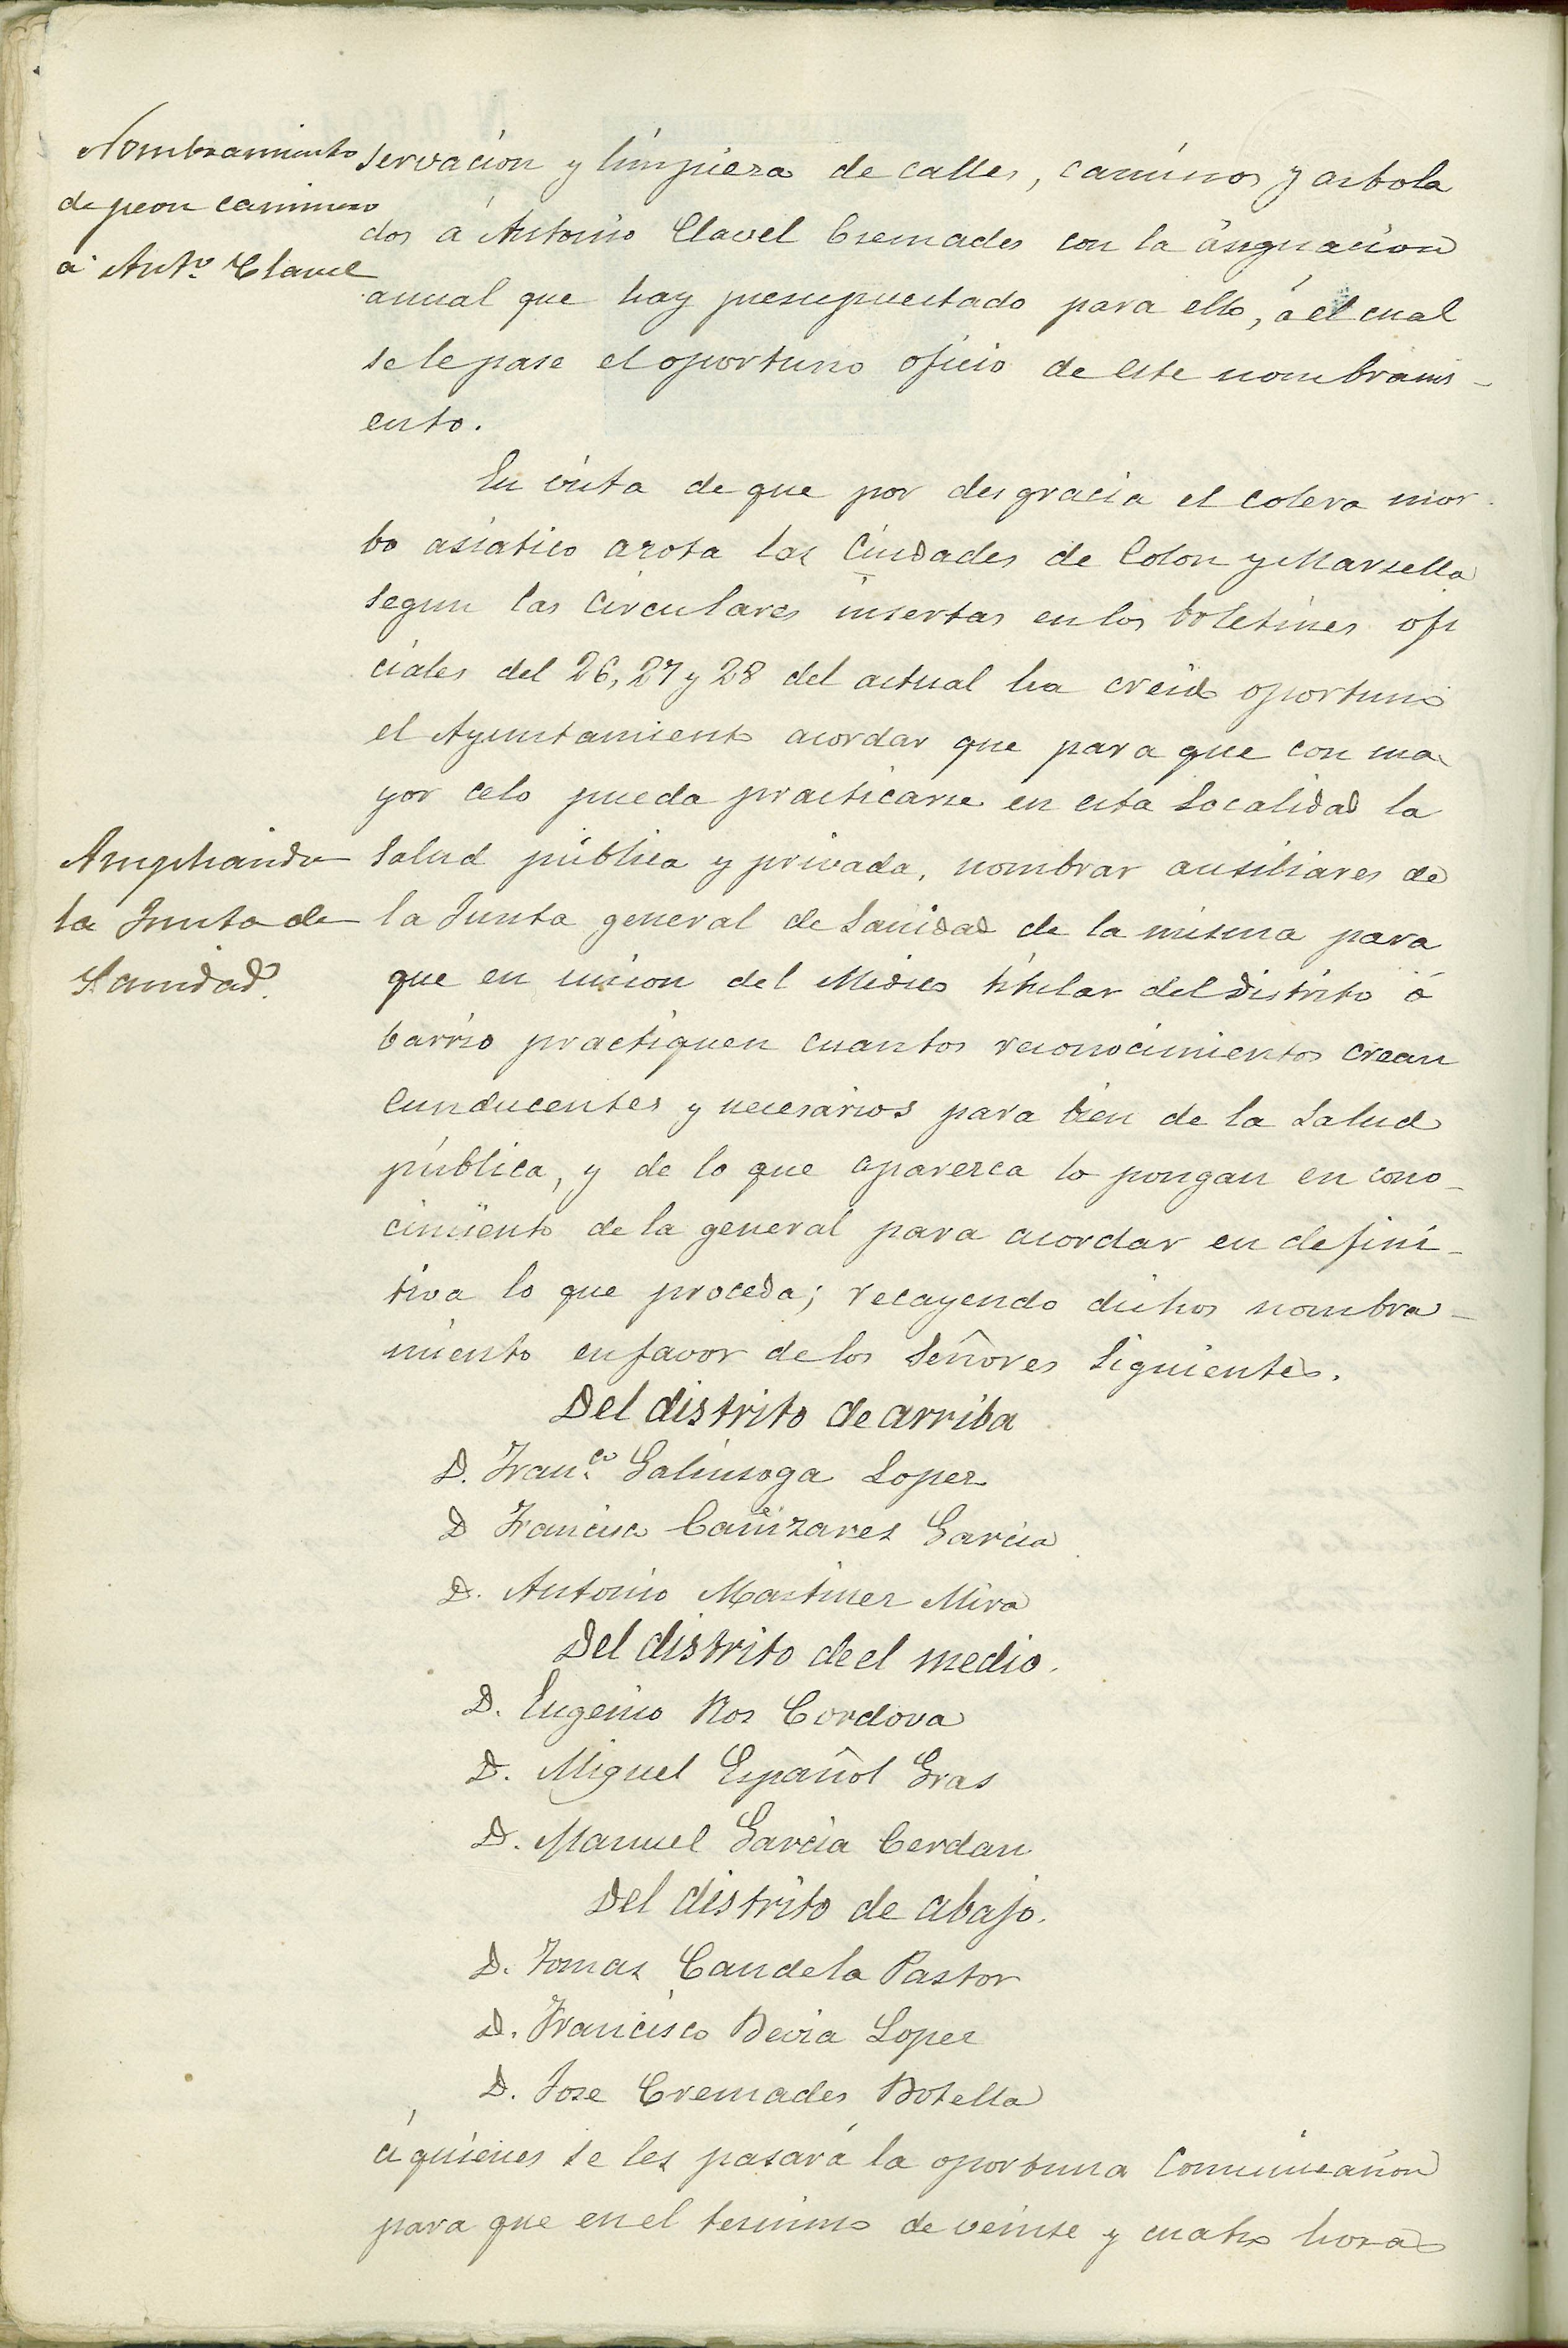 Nombramiento
de peon caminero
á Antº. Clavel
servacion y limpieza de calles, caminos y arbola
dos á Antonio Clavel Cremades con la asignacion
anual que hay presupuestado para ello, á el cual
se le pase el oportuno oficio de este nombrami-
ento.
En vista de que por desgracia el colera mor-
bo asiatico azota las Ciudades de Tolon y Marsella
segun las circulares insertas en los boletines ofi
ciales del 26, 27 y 28 del actual ha creido oportuno
el Ayuntamiento acordar que para que con ma-
yor celo pueda practicarse en esta Localidad la
Ampliando
la Junta de
Sanidad.
salud pública y privada, nombrar ausiliares de
la Junta general de Sanidad de la misma para
que en union del Medico titular del distrito ó
barrio practiquen cuantos reconocimientos crean
cunducentes y necesarios para bien de la salud
pública, y de lo que aparezca lo pongan en cono-
cimiento de la general para acordar en defini-
tiva lo que proceda; recayendo dichos nombra-
miento en favor de los Señores siguientes.
Del distrito de arriba
D. Fran.co Galinsoga Lopez
D Francisco Cañizares Garcia
D. Antonio Martinez Mira
Del distrito de el medio.
D. Eugenio Ros Cordova
D. Miguel Español Gras
D. Manuel Garcia Cerdan
Del distrito de abajo.
D. Tomas Candela Pastor
D. Francisco Devia Lopez
D. Jose Cremades Botella
á quienes se les pasará la oportuna comunicacion
para que en el termino de veinte y cuatro horas